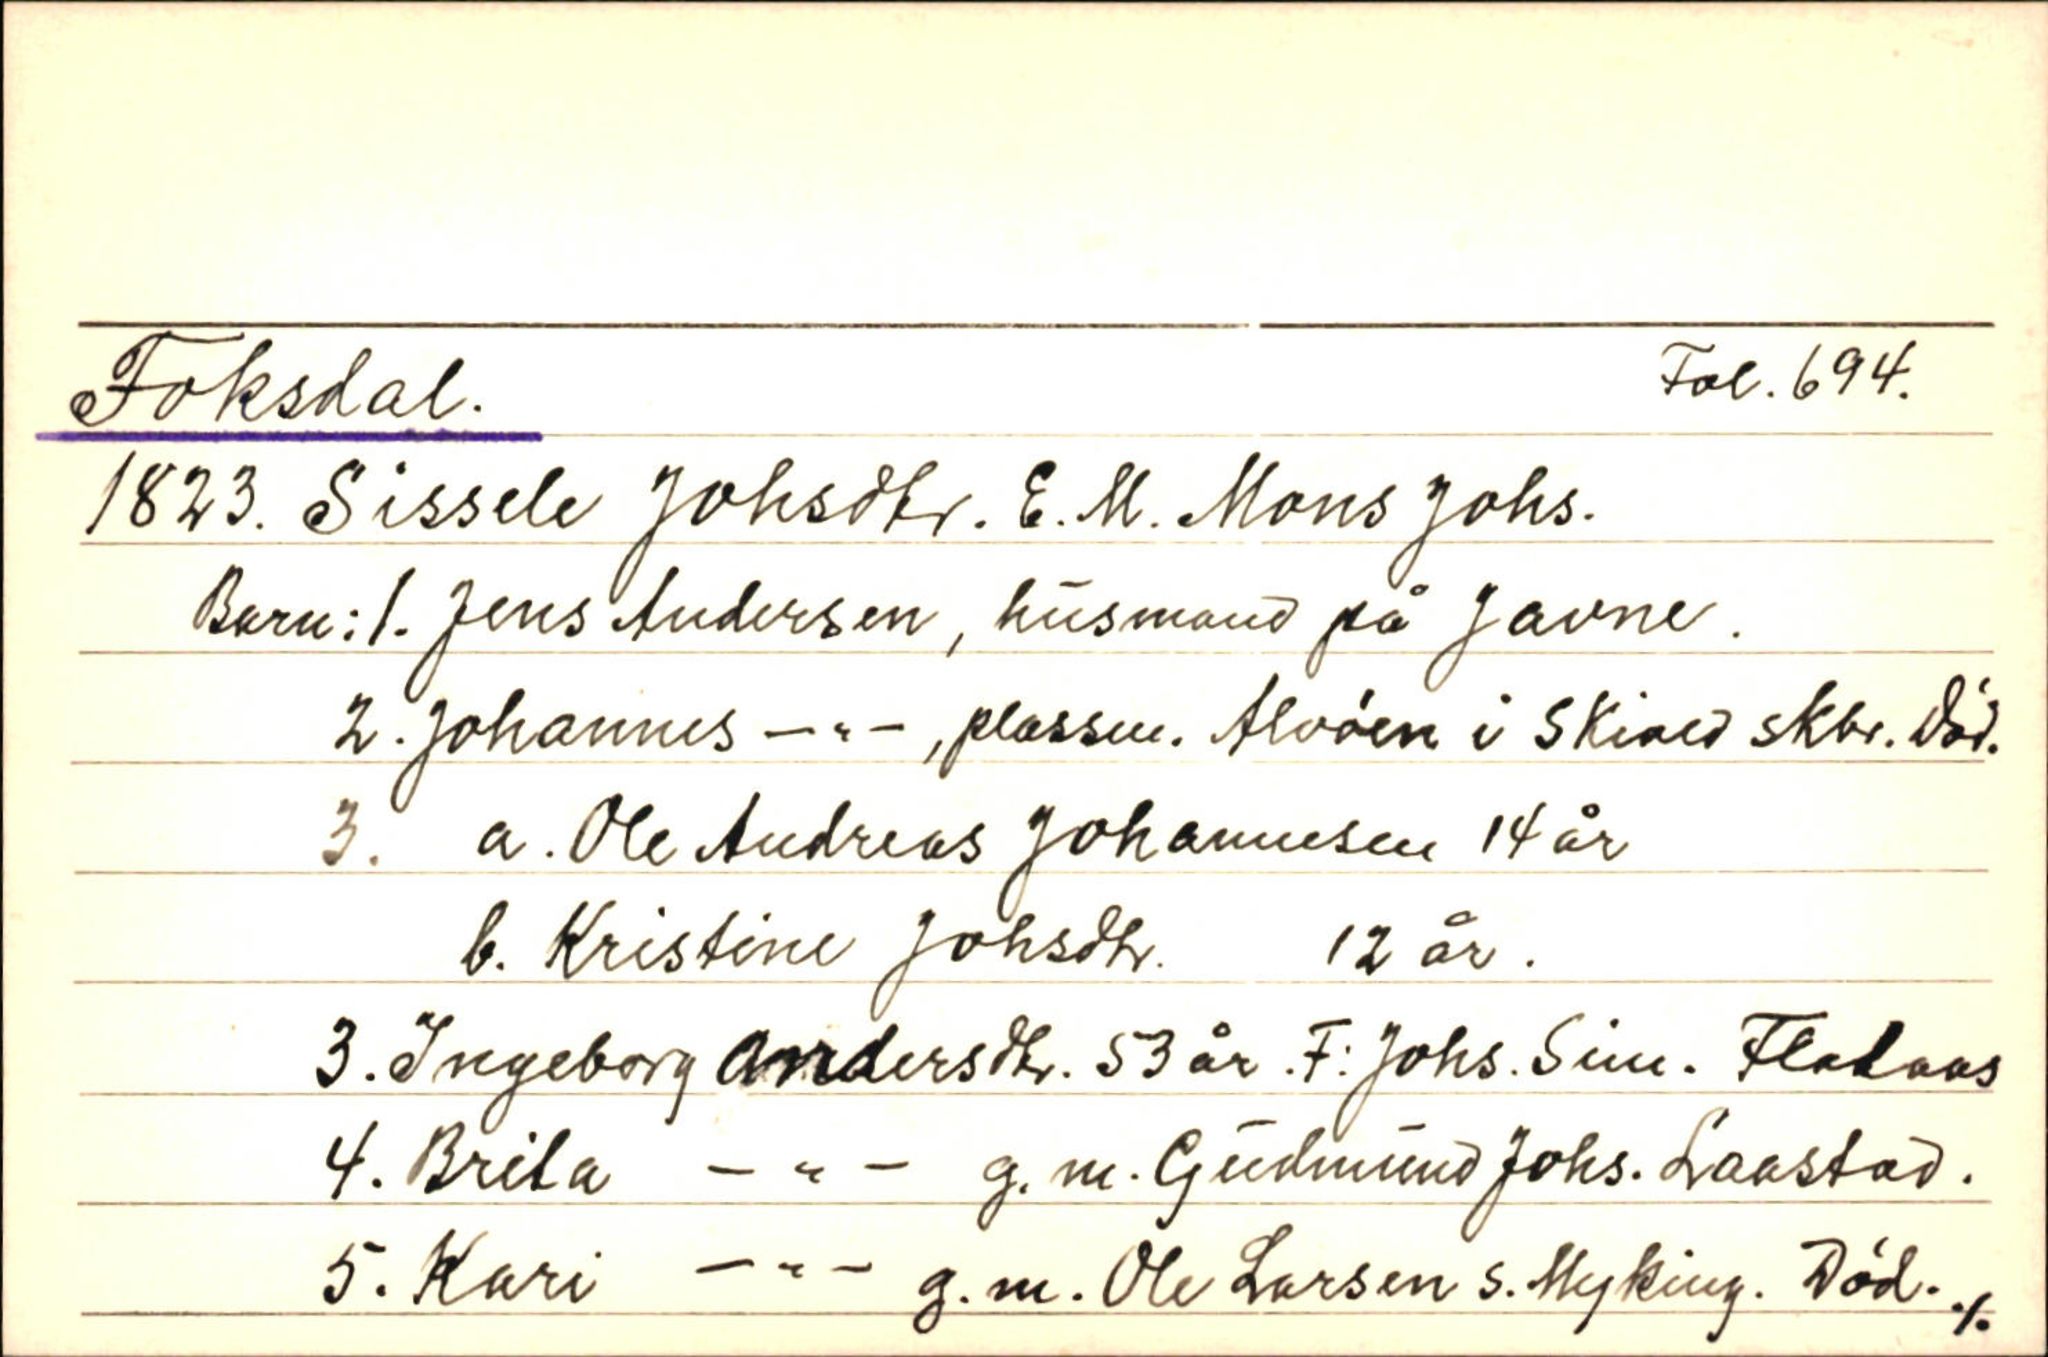 Foksdal. Fol. 694.
1823. Sissele Johsdtr. E. M. Mons Johs.
Barn: 1. Jens Andersen, husmand på Javne.
2. Johannes —"—, plassm. Alvöen i Skiold skbr. Död.
3. a. Ole Andreas Johannesen 14 år
b. Kristine Johsdtr. 12 år.
3. Ingeborg Andersdtr. 53 år. F: Johs. Sim. Flataas
4. Brita —"— g. m. Gudmund Johs. Laastad.
5. Kari —"— g. m. Ole Larsen s. Myking. Död. ./.